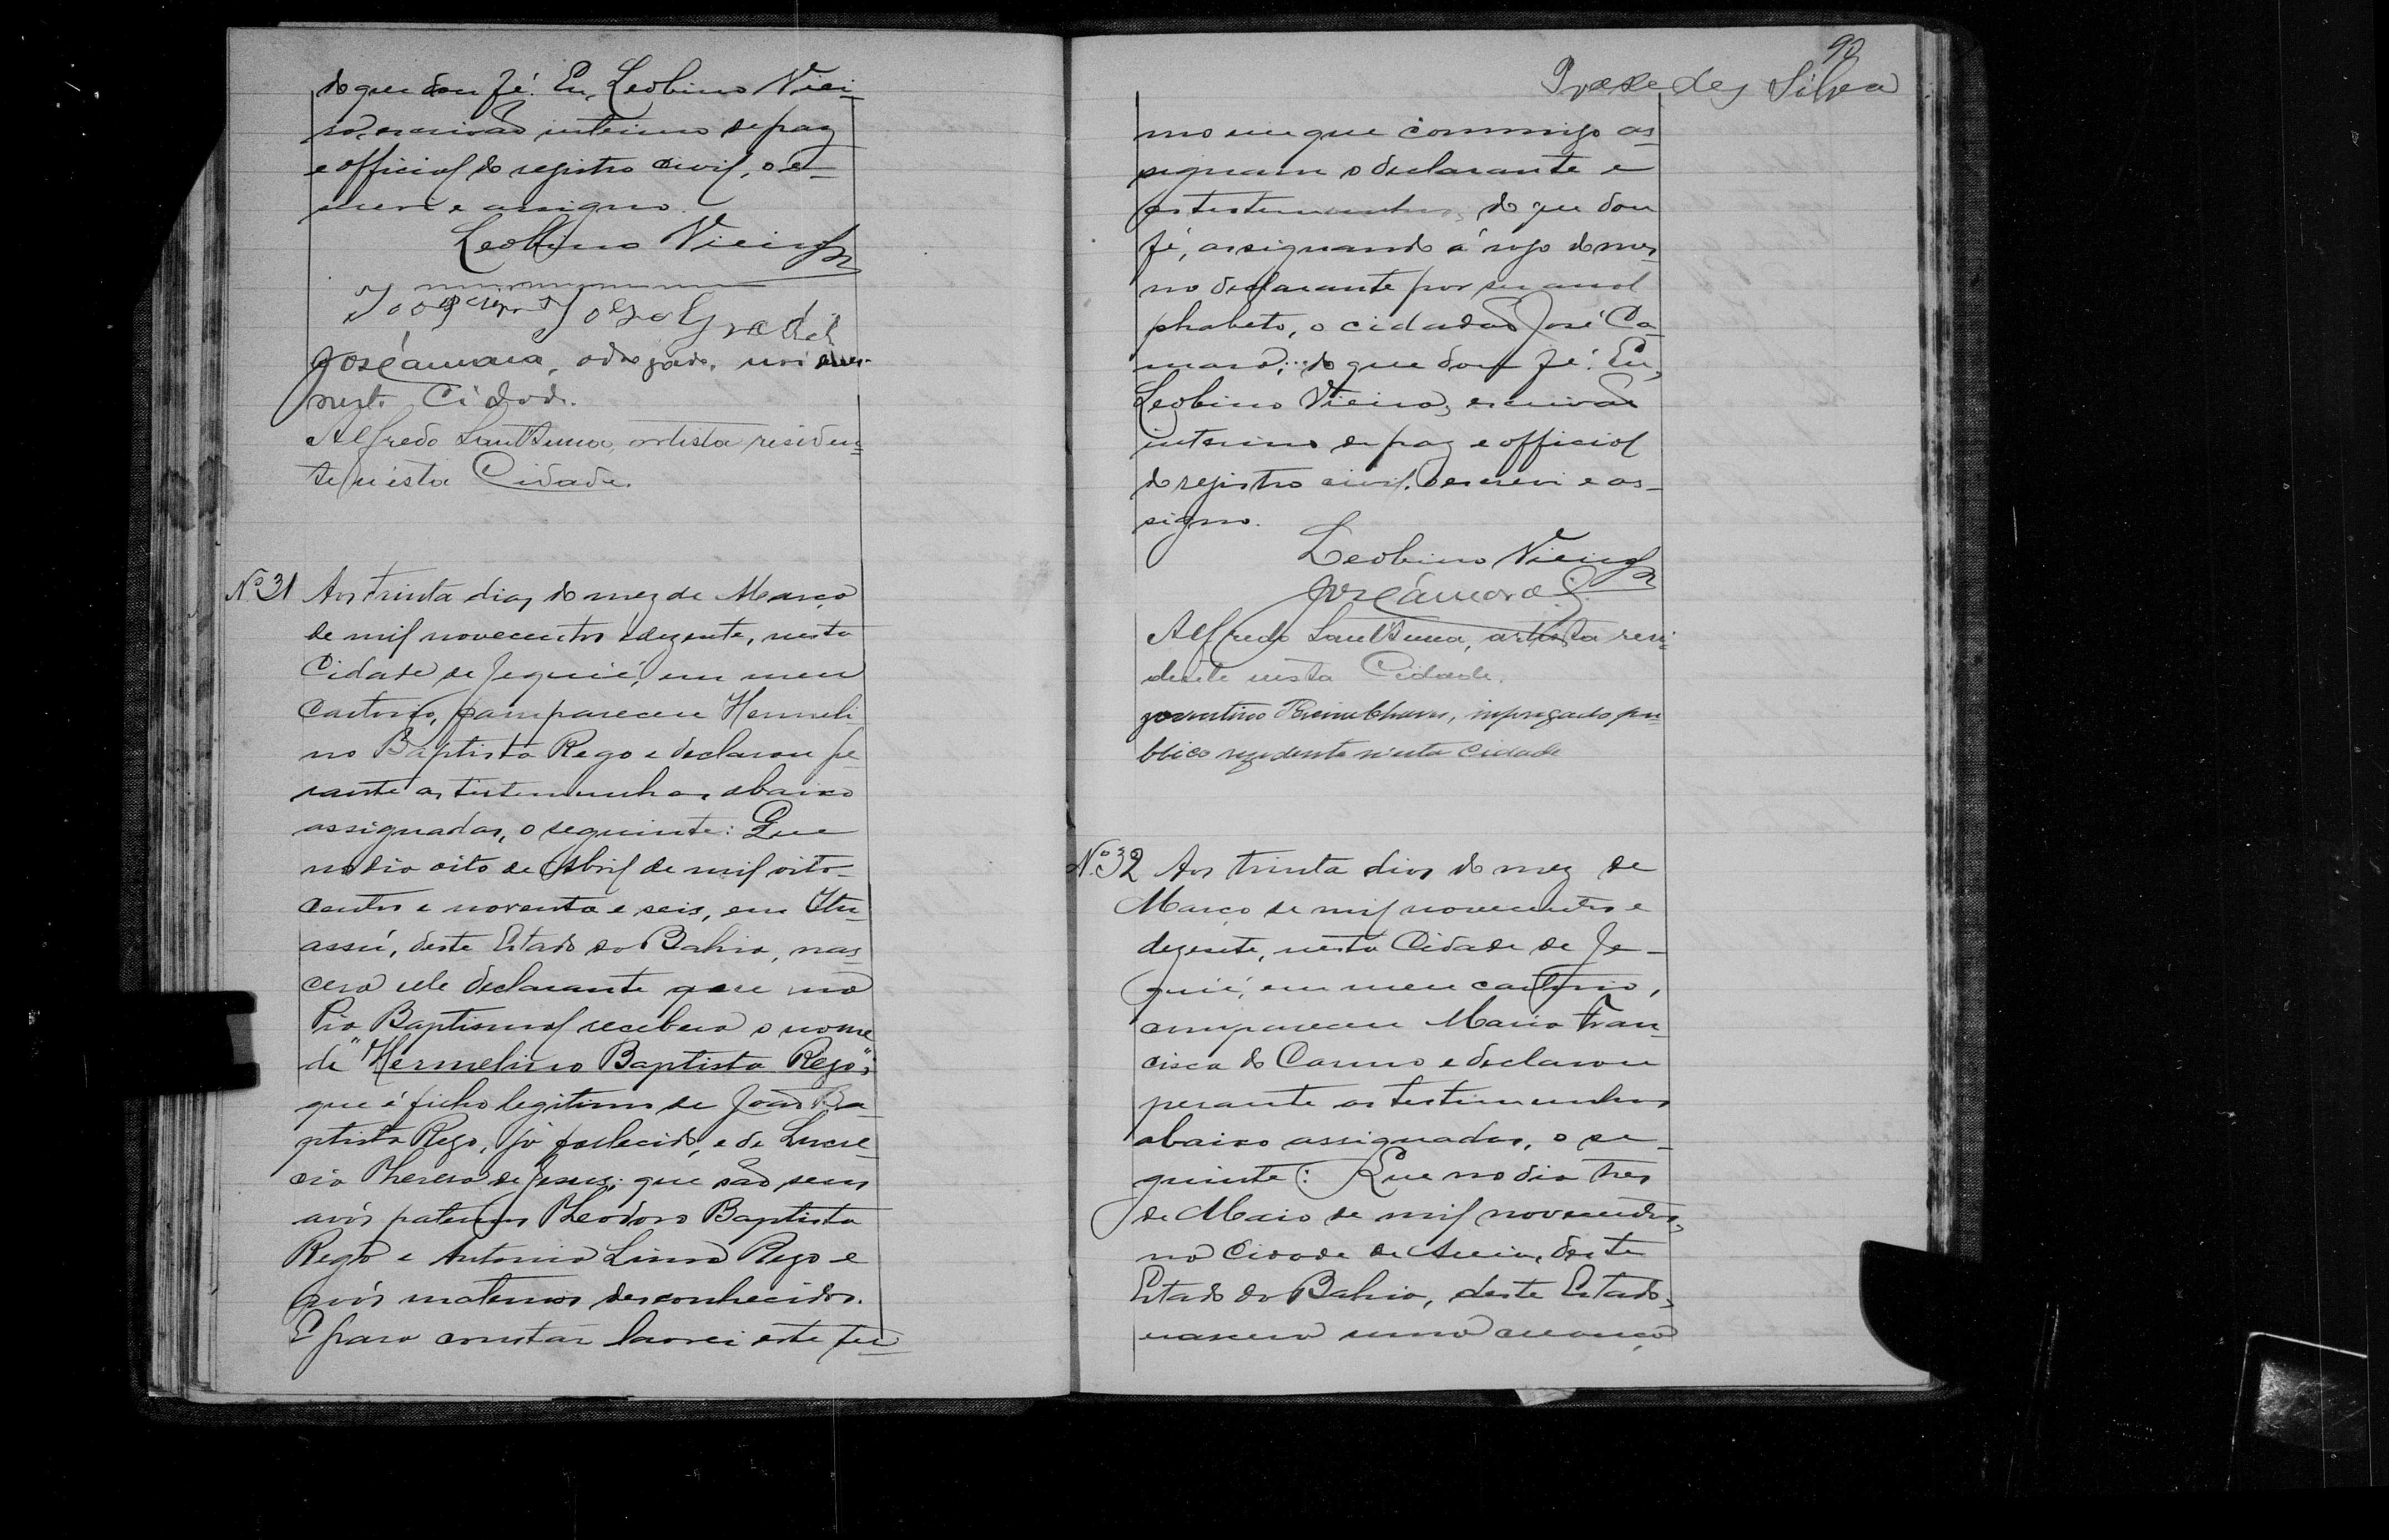 do que dou fé. Eu, Leobino Viei-
ra, escrivão interino de paz
e official do registro civil, o es-
crevi e assigno.
Leobino Vieira
José Camara, advogado,
nesta Cidade.
Alfredo Sant'Anna, artista residen-
te n'esta Cidade.
Nº 31 Aos trinta dias do mez de Março
de mil novecentos e dezesete, nesta
Cidade de Jequié, em meu
Cartorio, compareceu Hermeli-
no Baptista Rego e declarou pe-
rante as testemunhas abaixo
assignadas, o seguinte: Que
no dia oito de Abril de mil oito-
centos e noventa e seis, em Itu-
assú, deste Estado da Bahia, nas-
cera elle declarante que na
Pia Baptismal recebera o nome
de "Hermelino Baptista Rego";
que é filho legitimo de João Ba-
ptista Rego, já fallecido, e de Lucre-
cia Thereza de Jesus; que são seus
avós paternos Theodoro Baptista
Rego e Antonia Lima Rego e
avós maternos desconhecidos.
E para constar lavrei este ter-
90
Praxedes Silva
mo em que commigo as-
signam o declarante e
as testemunhas, do que dou
fé, assignando á rogo do mes-
mo declarante por ser anal-
phabeto, o cidadão José Ca-
mara; do que dou fé. Eu,
Leobino Vieira, escrivão
interino de paz e official
do registro civil, o escrevi e as-
signo.
Leobino Vieira
José Camara
Alfredo Sant'Anna, artista resi-
dente nesta Cidade.
Joventino, impregado pu-
blico rezidente n'esta Cidade
Nº 32 Aos trinta dias do mez de
Março de mil novecentos e
dezesete, nesta Cidade de Je-
quié, em meu cartorio,
compareceu Maria Fran-
cisca do Carmo e declarou
perante as testemunhas
abaixo assignadas, o se-
guinte: Que no dia tres
de Maio de mil novecentos,
na Cidade de Areia, deste
Estado da Bahia, deste Estado,
nascera uma creança